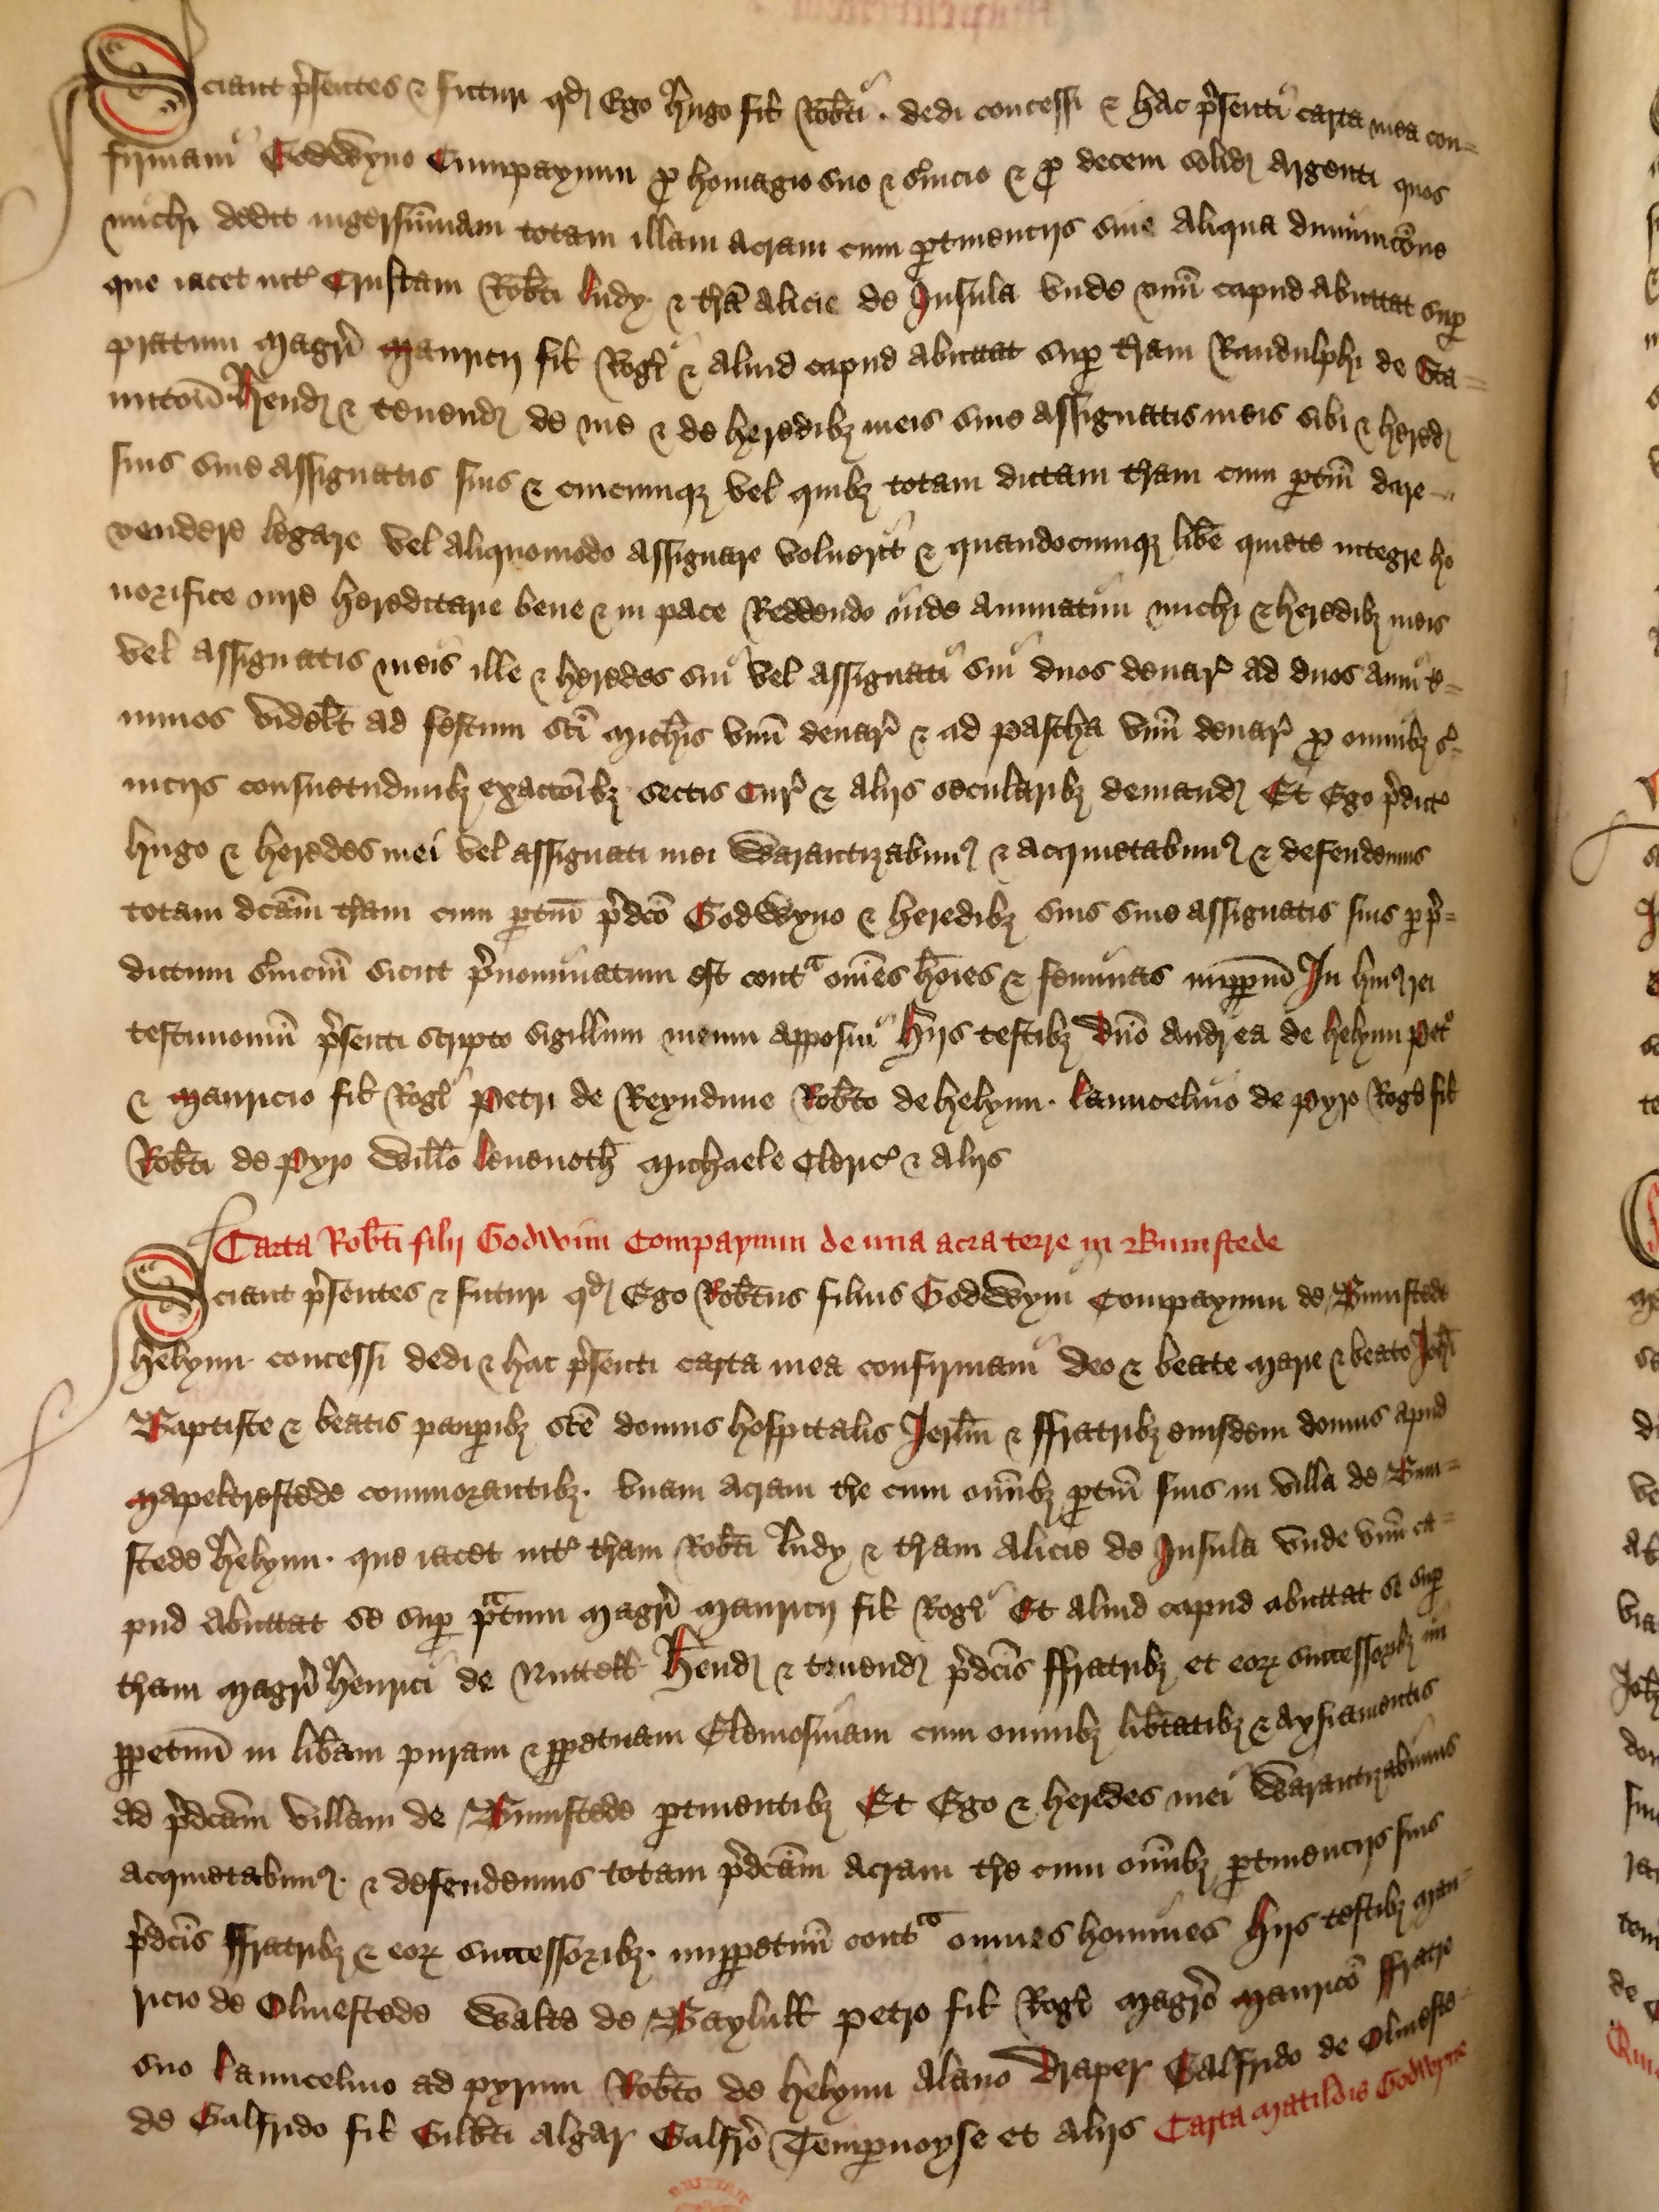 Sciant p̄sentes ⁊ futuri qd̄ Ego Hugo fil̄ Rob̄ti dedi concessi ⁊ hac p̄senti carta mea con=
firmaui Godwyno Cumpaynun p̄ homagio suo ⁊ s̄uicio ⁊ p̄ decem solid̄ argenti quos
michi dedit ingersūmam totam illam acram cum p̄tinencijs sine aliqua diminuc̄one
que iacet int̄ Crustam Rob̄ti Ludy ⁊ t̄rā Alicie de Insula vnde vnū capud abuttat sup̄
pratum Magr̄i Mauricij fil̄ Roḡi ⁊ aliud capud abuttat sup̄ t̄ram Randulphi de Sta=
Hend̄ ⁊ tenend̄ de me ⁊ de heredibȝ meis siue assignatis meis sibi ⁊ hered̄
suis siue assignatis suis ⁊ cuicumqȝ vel quibȝ totam dictam t̄ram cum p̄tin̄ dare
vendere legare vel aliquomodo assignare voluer̄it ⁊ quandocumqȝ lib̄e quiete integre ho
norifice iure hereditarie bene ⁊ in pace Reddendo īnde annuatim michi ⁊ heredibȝ meis
vel assignatis meis ille ⁊ heredes sui vel assignati sui duos denar̄ ad duos anni t̄=
minos videl̄t ad festum sc̄i Mich̄is vnū denar̄ ⁊ ad pascha vnū denar̄ p̄ omnibȝ s̄=
uicijs consuetudinibȝ exacc̄onibȝ sectis Cur̄ ⁊ alijs secularibȝ demand̄ Et Ego p̄dict̄
hugo ⁊ heredes mei vel assignati mei Warantizabimꝰ ⁊ acquietabimꝰ ⁊ defendemus
totam dc̄am t̄ram cum p̄tin̄ p̄dc̄o Godwyno ⁊ heredibȝ suis siue assignatis suis p̄ p̄=
dictum s̄uiciū sicut p̄nominatum est cont̄ᵃ om̄es hōīes ⁊ feminas imp̄p̄m̄ In huiꝰ rei
testimoniū p̄senti scripto sigillum meum apposui Hijs testibȝ Dn̄o Andrea de helyun Pet̄
⁊ Mauricio fil̄ Roḡi Petri de Reyndune Rob̄to de helyun. Launcelino de Pyro Roḡo fil̄
Rob̄ti de Pyro Will̄o Leuenoth̄ Michaele Cleric̄ ⁊ Alijs
Carta Rob̄ti filij Godwini Compaynun de una acra terre in Bumstede
Sciant p̄sentes ⁊ futuri qd̄ Ego Rob̄tus filius Godwyni Compaynun de Bumstede
helyun concessi dedi ⁊ hac p̄senti carta mea confirmaui deo ⁊ beate marie ⁊ beato Joh̄i
Baptiste ⁊ beatis paup̄ibȝ sc̄e domus hospitalis Jerl̄m ⁊ ffratribȝ eiusdem domus apud
Mapelterstede commorantibȝ. vnam acram t̄re cum om̄ībȝ p̄tin̄ suis in villa de Bum=
stede helyun. que iacet int̄ t̄ram Rob̄ti Ludy ⁊ t̄ram Alicie de Insula vnde vnū ca=
pud abuttat se sup̄ pᵃtum Magr̄i Mauricij fil̄ Roḡi Et aliud capud abuttat se sup̄
t̄ram Magr̄i Henrici de Hend̄ ⁊ tenend̄ p̄dc̄is ffratribȝ et eorꝫ successoribȝ in
p̄petuū in lib̄am puram ⁊ p̄petuam Elemosinam cum omnibȝ lib̄tatibȝ ⁊ aysiamentis
ad p̄dc̄am villam de Bumstede p̄tinentibȝ Et Ego ⁊ heredes mei Warantizabimus
acquietabimꝰ. ⁊ defendemus totam p̄dc̄am acram t̄re cum om̄ībȝ p̄tinencijs suis
p̄dc̄is ffratribȝ ⁊ eorꝫ successoribȝ. imp̄petuū cont̄ᵃ omnes homines Hijs testibȝ Mau=
ricio de Olmestede Walt̄o de Petro fil̄ Roḡi Magr̄o Mauric̄o ffratre
suo Launcelino ad pyrum Rob̄to de helyun Alano Draper Galfrido de Olmeste=
de Galfrido fil̄ Gilb̄ti Algar Galfr̄o Temp̄noyse et alijs Carta Matildis Godwyne